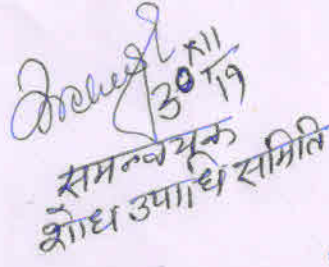 30/XII/19
समन्वयक
शोध उपाधि समिति